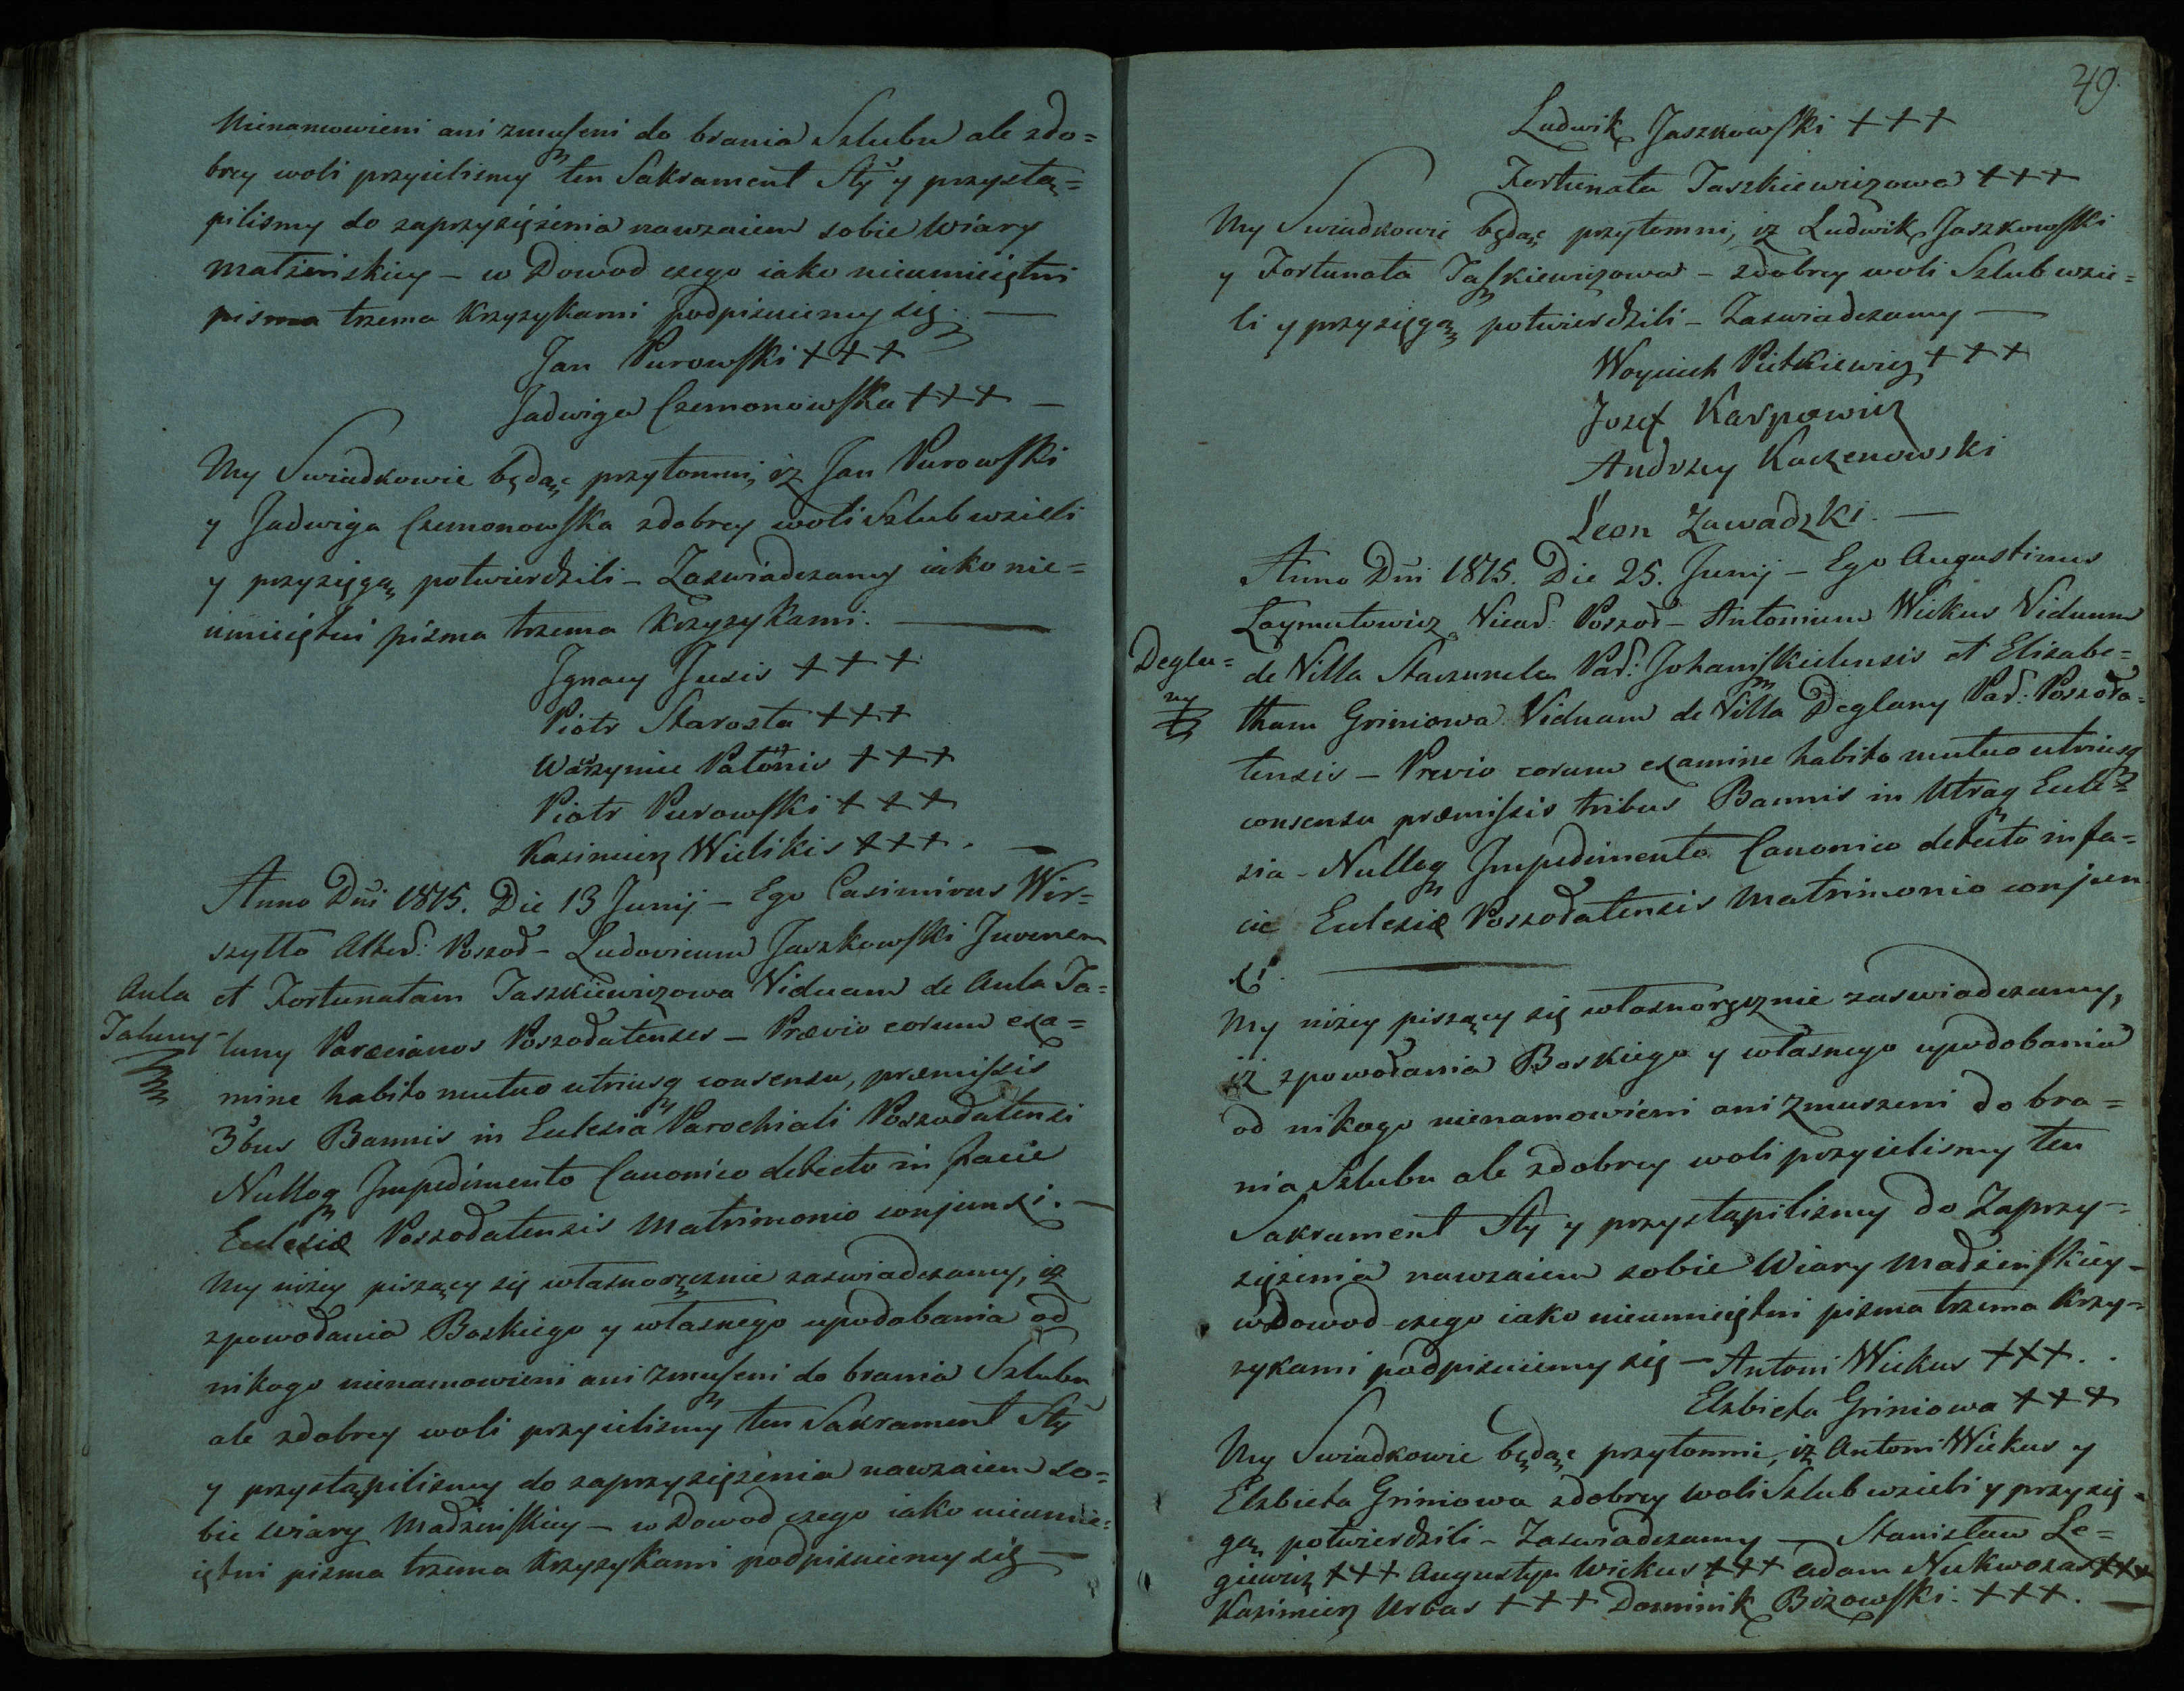 nienamowieni ani zmuszeni do brania Szlubu ale zdo=
brey woli przyieliśmy ten Sakrament Sty y przystą=
piliśmy do zaprzysiężenia nawzaiem sobie Wiary
małżeńskiey - w Dowod czego iako nieumieiętni
pisma trzema Krzyzykami podpisuiemy się. —
Jan Purowski +++
Jadwiga Czemonowska +++ —
My Swiadkowie będąc przytomni, iż Jan Purowski
y Jadwiga Czemonowska zdobrey woli Szlub wzieli
y przysięgą potwierdzili - Zaswiadczamy iako nie=
umieiętni pisma trzema Krzyzykami. —
Ignacy Juzis +++
Piotr Starosta +++
Wawrzyniec Patonis +++
Piotr Purowski +++
Kazimierz Wielikis +++. —
Anno Dni 1815. Die 13 Junij - Ego Casimirus Wir=
szytto Alted: Poszod - Ludovicum Jaszkowski Juvenem
Aula et Fortunatam Jaszkiewiczowa Viduam de Aula Ja=
Jaluny - luny Paraecianos Poszodatenses - Praevio eorum exa=
mine habito mutuo utriusq consensu, praemissis
3bus Bannis in Eclesia Parochiali Poszodatensi
Nulloq Impedimento Canonico detecto in facie
Eclesiae Poszodatensis Matrimonio conjunxi. —
My niżey piszący się własnoręcznie zaswiadczamy, iż
zpowodania Boskiego y własnego upodobania od
nikogo nienamowieni ani zmuszeni do brania Szlubu
ale zdobrey woli przyieliśmy ten Sakrament Sty
y przystąpiliśmy do zaprzysiężenia nawzaiem so=
bie wiary Madżeńskiey - w Dowod czego iako nieumie=
iętni pisma trzema Krzyzykami podpisuiemy się —
49.
Ludwik Jaszkowski +++
Fortunata Jaszkiewiczowa +++
My Swiadkowie będąc przytomni, iż Ludwik Jaszkowski
y Fortunata Jaszkiewiczowa - zdobrey woli Szlub wzie=
li y przysięgą potwierdzili - Zaswiadczamy —
Woyciech Pietkiewicz +++
Jozef Karpowicz
Andrzey Kaczenowski
Leon Zawadzki. —
Anno Dni 1815. Die 25. Junij - Ego Augustinus
Laymutowicz Vicad: Poszod - Antonium Wickus Viduum
Deglu= de Villa Staczunela Pad: Johaniszkielensis et Elisabe=
ny tham Griniowa Viduam de Villa Deglany Pad: Poszoda=
tensis - Previo eorum examine habito mutuo utriusq
consensu praemissis tribus Bannis in Utraq Ecle=
sia - Nulloq Impedimento Canonico detecto in fa=
cie Eclesiae Poszodatensis Matrimonio conjun
xi. —
My niżey piszący się własnoręcznie zaswiadczamy,
iż zpowodania Boskiego y własnego upodobania
od nikogo nienamowieni ani Zmuszeni do bra=
nia Szlubu ale zdobrey woli przyieliśmy ten
Sakrament Sty y przystąpiliśmy do Zaprzy=
siężenia nawzaiem sobie Wiary Madżeńskiey -
w Dowod czego iako nieumieiętni pisma trzema Krzy=
zykami podpisuiemy się - Antoni Wickus +++.
Elzbieta Griniowa +++
My Swiadkowie będąc przytomnie, iż Antoni Wickus y
Elzbieta Griniowa zdobrey woli Szlub wzieli y przysię=
gą potwierdzili - Zaswiadczamy - Stanisław Le=
giewicz +++ Augustyn Wickus +++ Adam Nukwozas +++
Kazimierz Urbas +++ Dominik Bizowski. +++. —